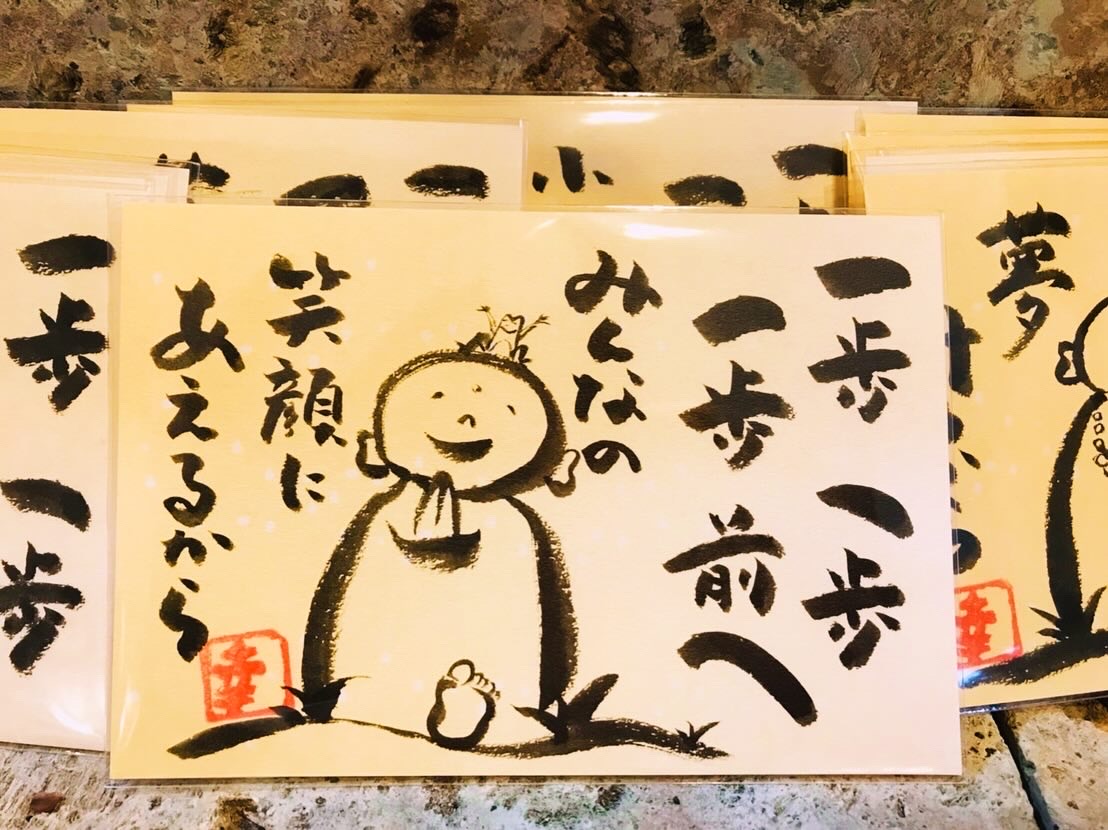 一歩一歩
一歩前へ
みんなの
笑顔に
あえるから
幸
夢
幸
一歩一歩